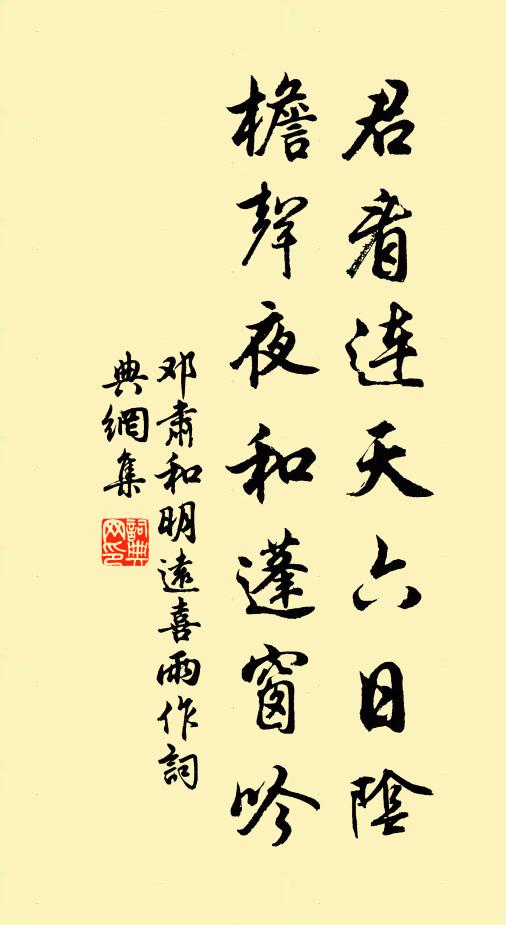 君看連天六日陰
檐聲夜和蓬窗吟
邓肅和明遠喜雨作詞
典網集
詞典网印